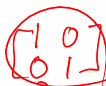 1 0
0 1